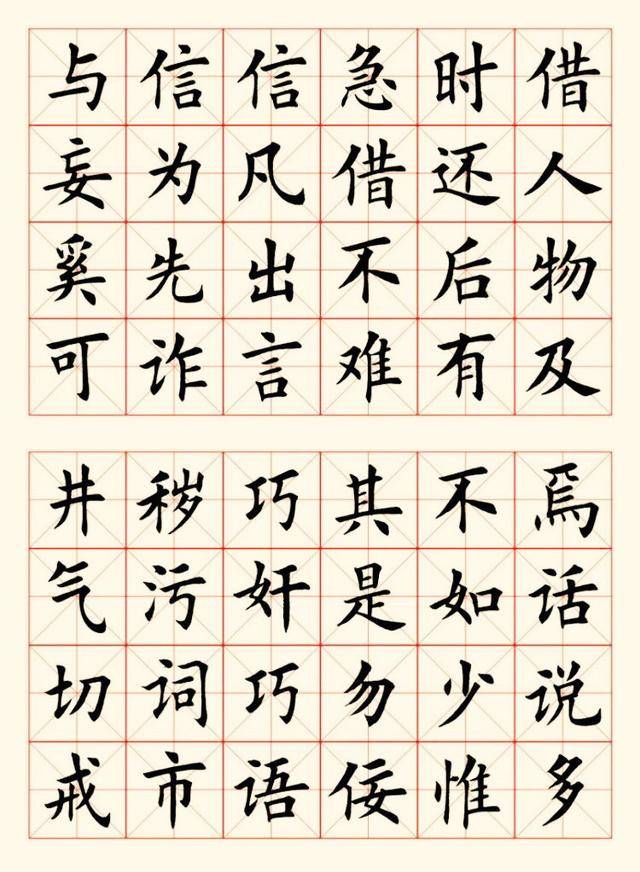 借人物及
时还后有
急借不难
信凡出言
信为先诈
与妄奚可
焉话说多
不如少惟
其是勿佞
巧奸巧语
秽污词市
井气切戒